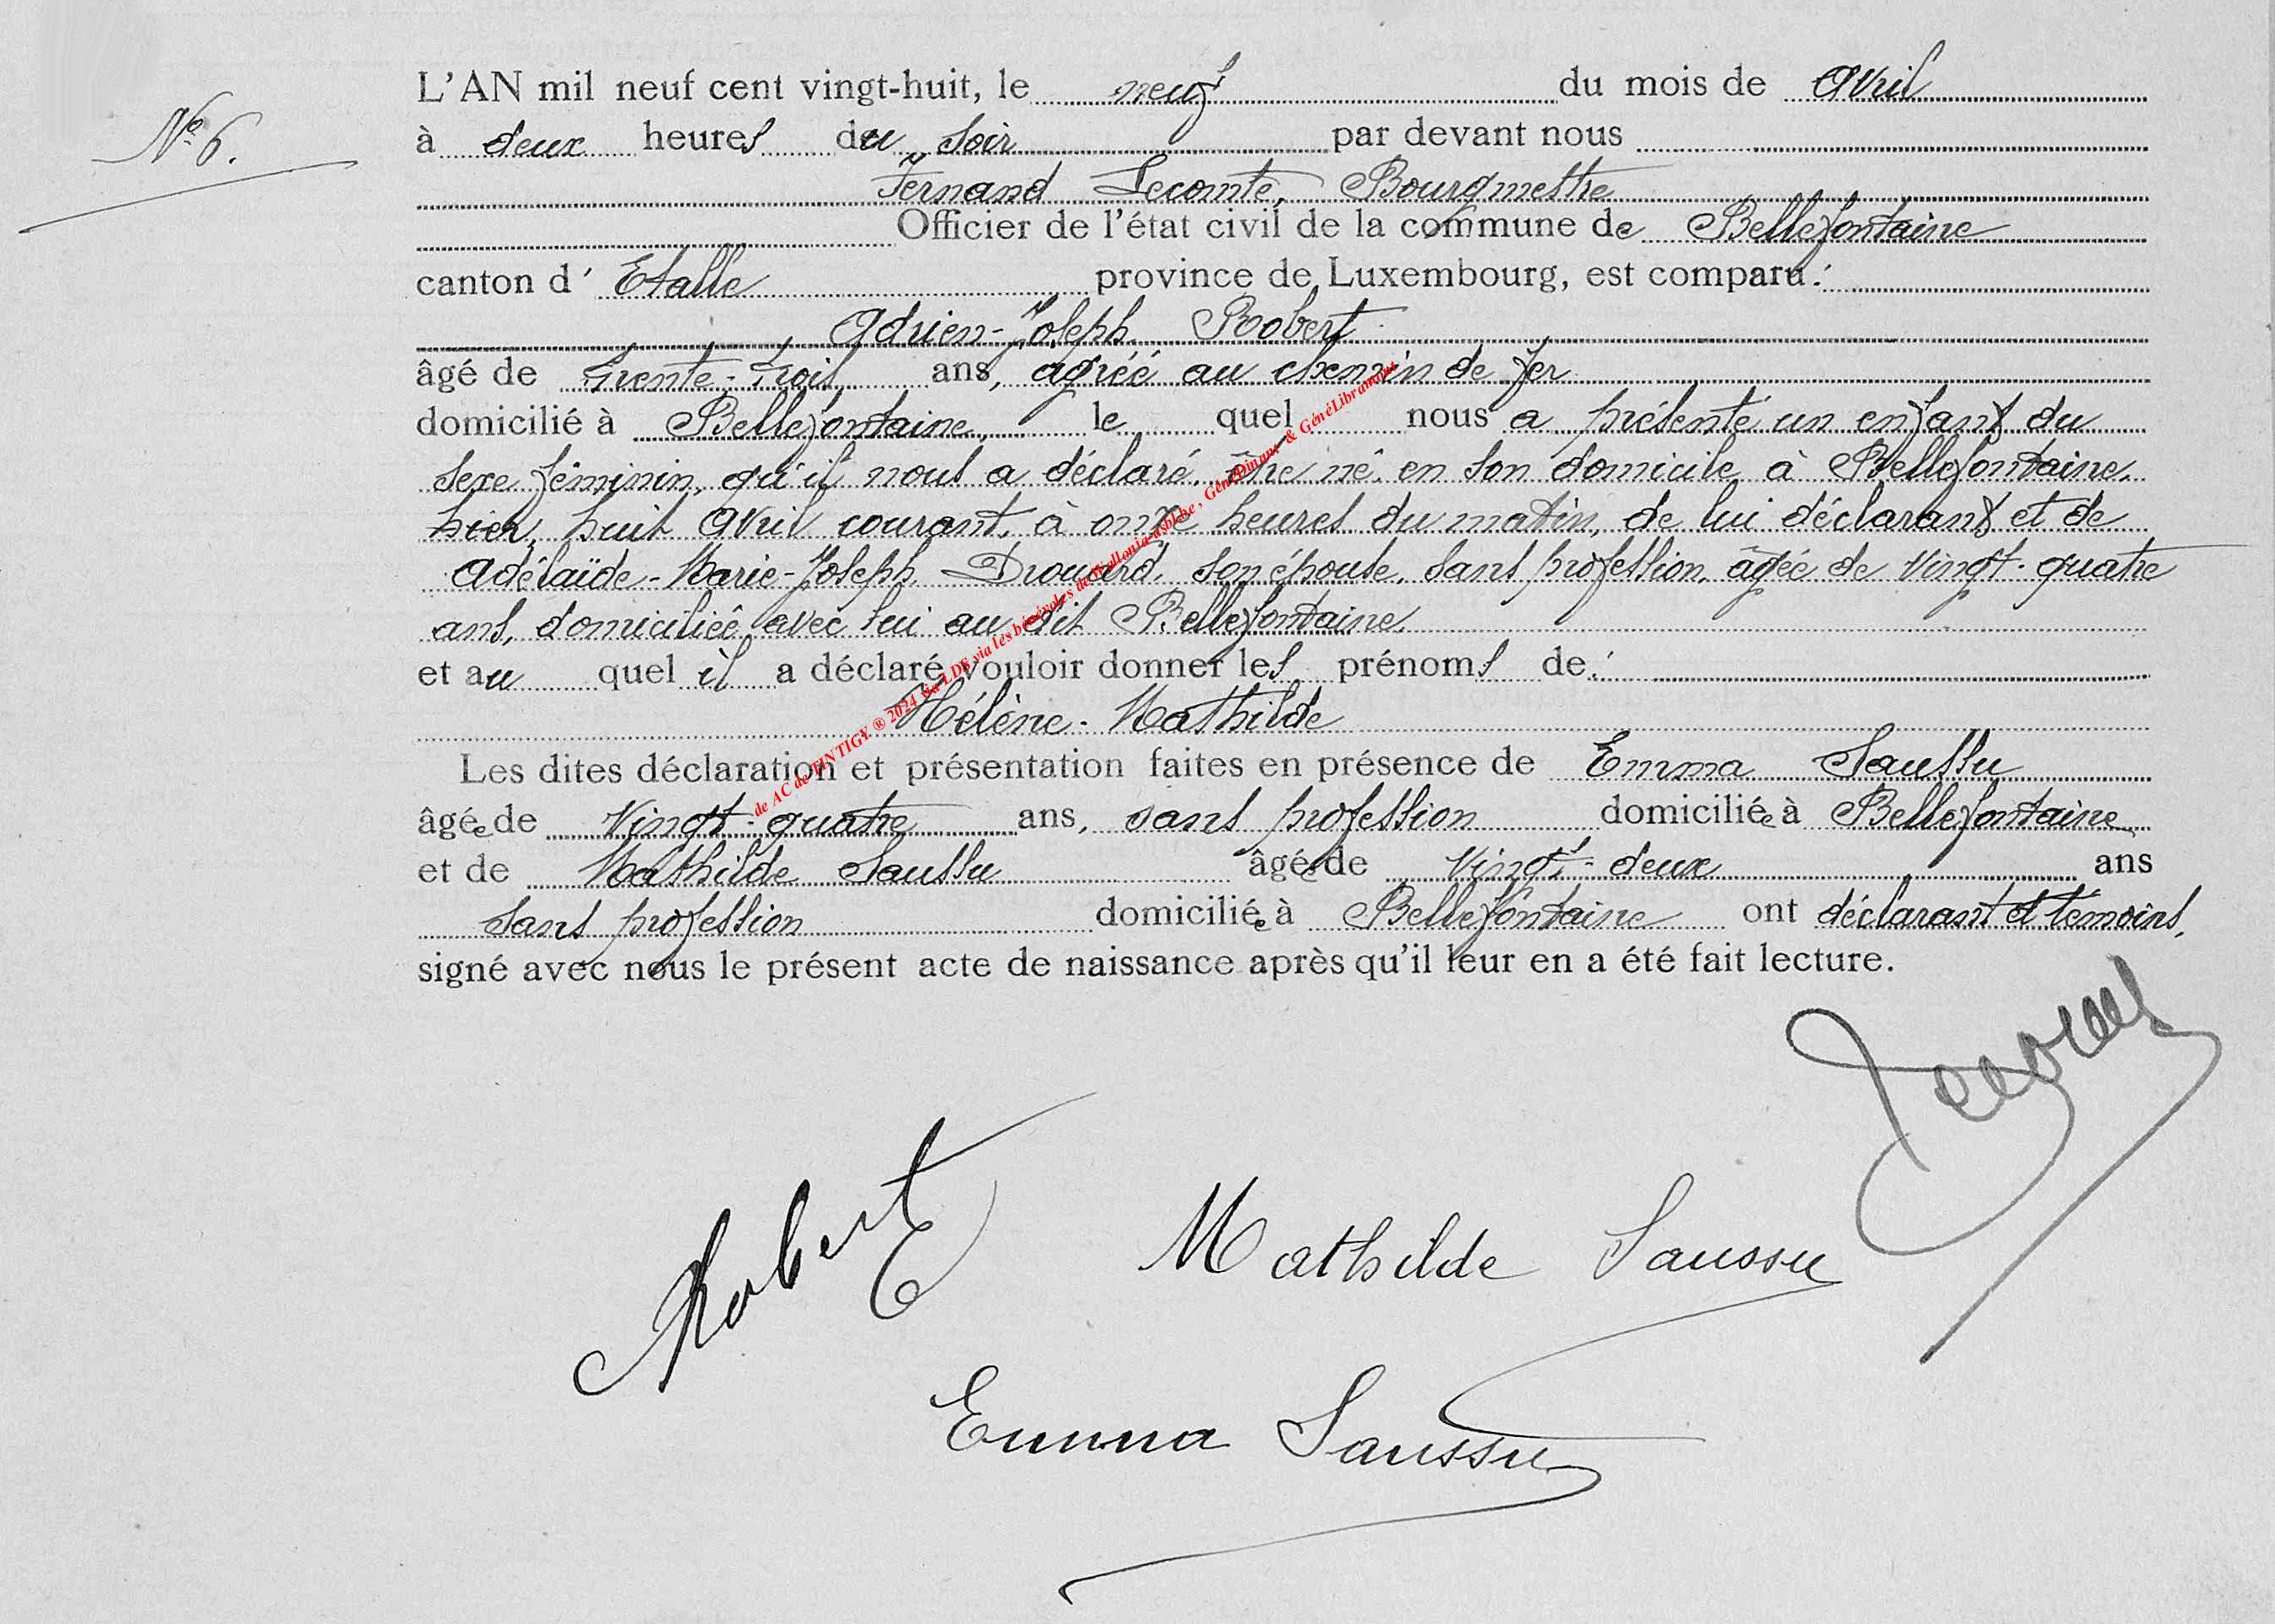 N° 6.
L'AN mil neuf cent vingt-huit, le neuf du mois de Avril
à deux heures du soir par devant nous
Fernand Lecomte, Bourgmestre
Officier de l'état civil de la commune de Bellefontaine
canton d' Etalle province de Luxembourg, est comparu :
Adrien-Joseph Robert
âgé de trente-trois ans, agréé au chemin de fer
domicilié à Bellefontaine, le quel nous a présenté un enfant du
sexe féminin, qu'il nous a déclaré être né en son domicile à Bellefontaine,
hier, huit Avril courant, à onze heures du matin, de lui déclarant et de
Adélaïde-Marie-Joseph Drouard, son épouse, sans profession, âgée de vingt-quatre
ans, domiciliée avec lui au dit Bellefontaine,
et au quel il a déclaré vouloir donner les prénoms de :
Hélène-Mathilde
Les dites déclaration et présentation faites en présence de Emma Saussu
âgée de vingt-quatre ans, sans profession domiciliée à Bellefontaine
et de Mathilde Saussu âgée de vingt-deux ans
sans profession domiciliée à Bellefontaine ont déclarant et témoins,
signé avec nous le présent acte de naissance après qu'il leur en a été fait lecture.
de AC de TINTIGY ® 2024 via LDS via les bénévoles de Wallonia-asbl.be , GénéDinant & GénéLibramont
Robert
Mathilde Saussu
Emma Saussu